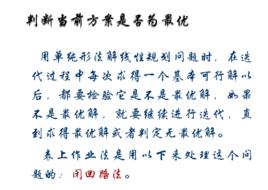 判断当前方案是否为最优
用单纯形法解线性规划问题时，在迭
代过程中每次求得一个基本可行解以
后，都要检验它是不是最优解，如果
不是最优解，就要继续进行迭代，直
到求得最优解或者判定无最优解。
表上作业法是用以下来处理这个问
题的：闭回路法。